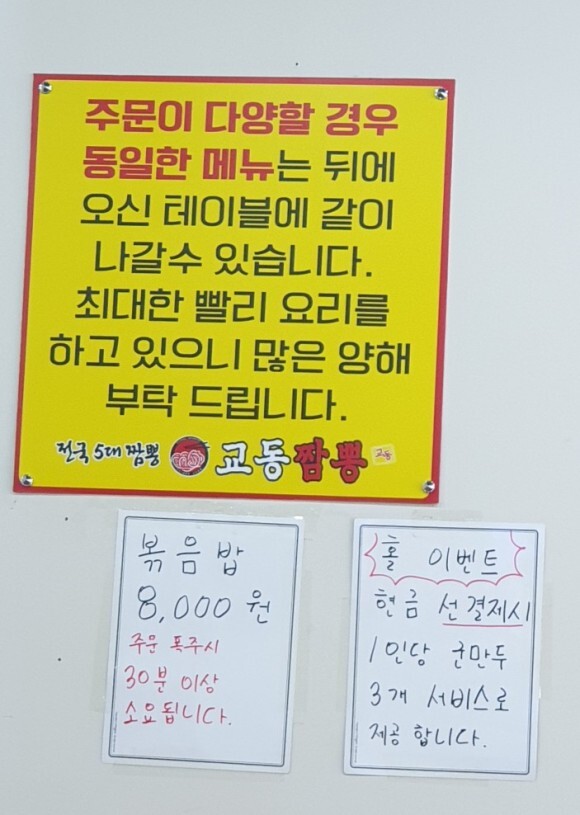 주문이 다양할 경우
동일한 메뉴는 뒤에
오신 테이블에 같이
나갈수 있습니다.
최대한 빨리 요리를
하고 있으니 많은 양해
부탁 드립니다.
전국 5대 짬뽕 교동짬뽕 교동
볶음밥
8,000원
주문 폭주시
30분 이상
소요됩니다.
홀 이벤트
현금 선결제시
1인당 군만두
3개 서비스로
제공합니다.